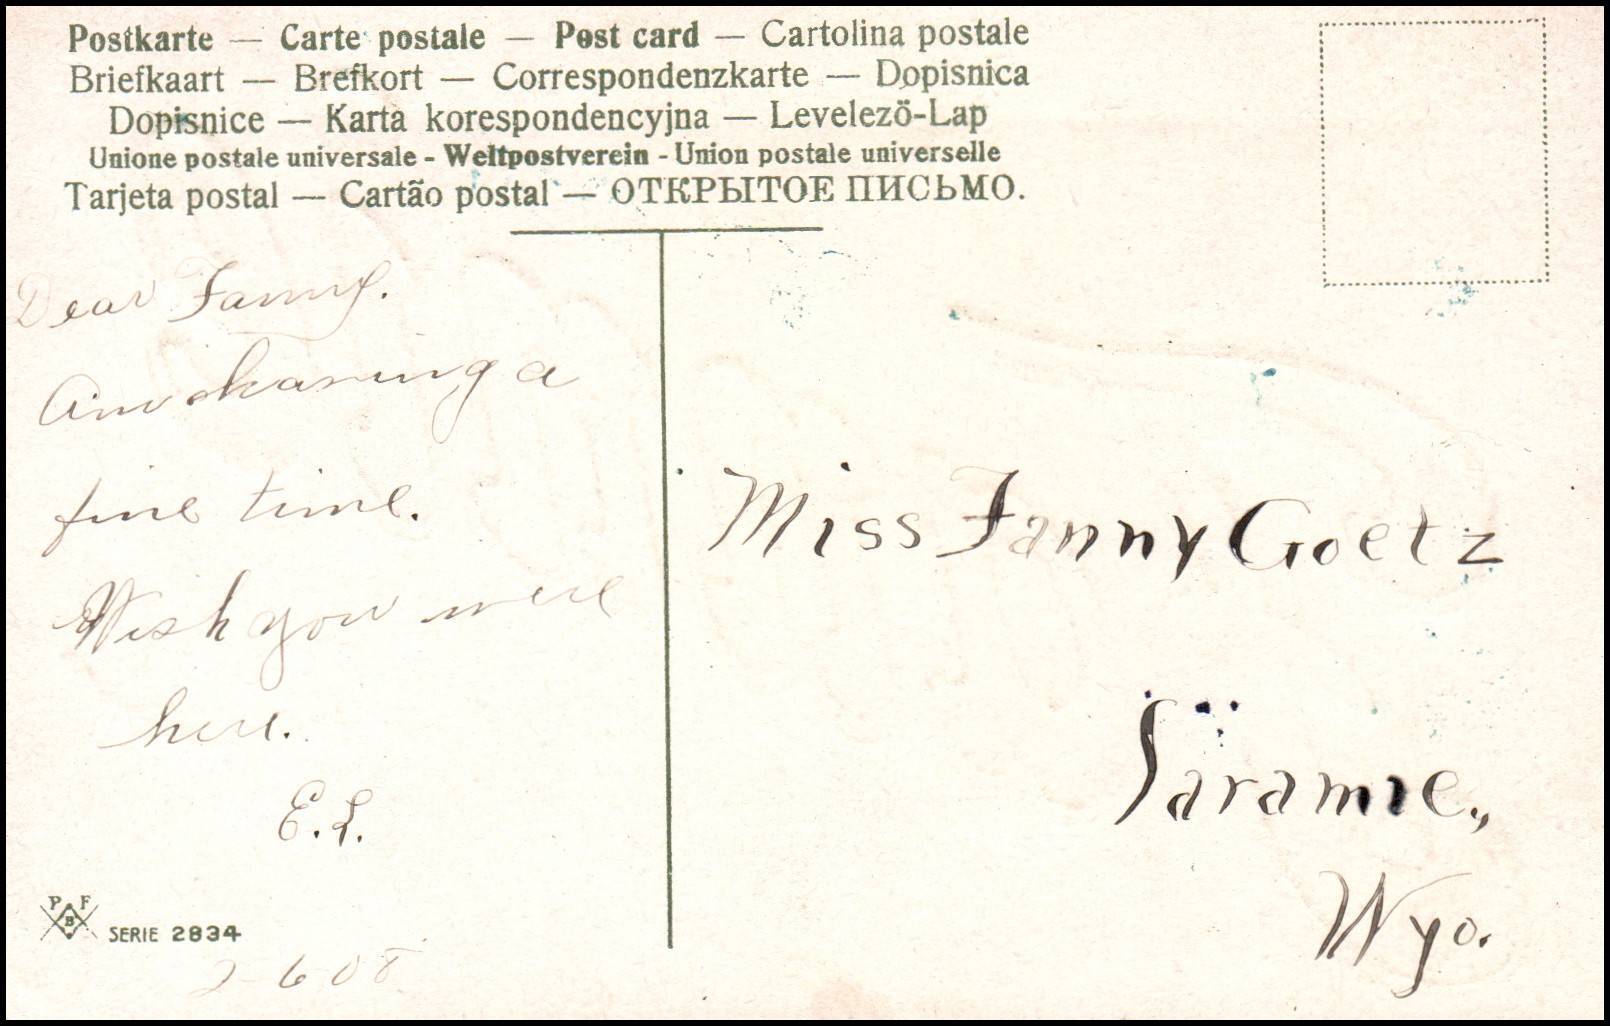 Postkarte — Carte postale — Post card — Cartolina postale
Briefkaart — Brefkort — Correspondenzkarte — Dopisnica
Dopisnice — Karta korespondencyjna — Levelező-Lap
Unione postale universale - Weltpostverein - Union postale universelle
Tarjeta postal — Cartão postal — ОТКРЫТОЕ ПИСЬМО.
Dear Fanny.
Am having a
fine time.
Wish you were
here.
E.L.
P F
B
SERIE 2834
2-6 08
Miss Fanny Goetz
Laramie.,
Wyo.